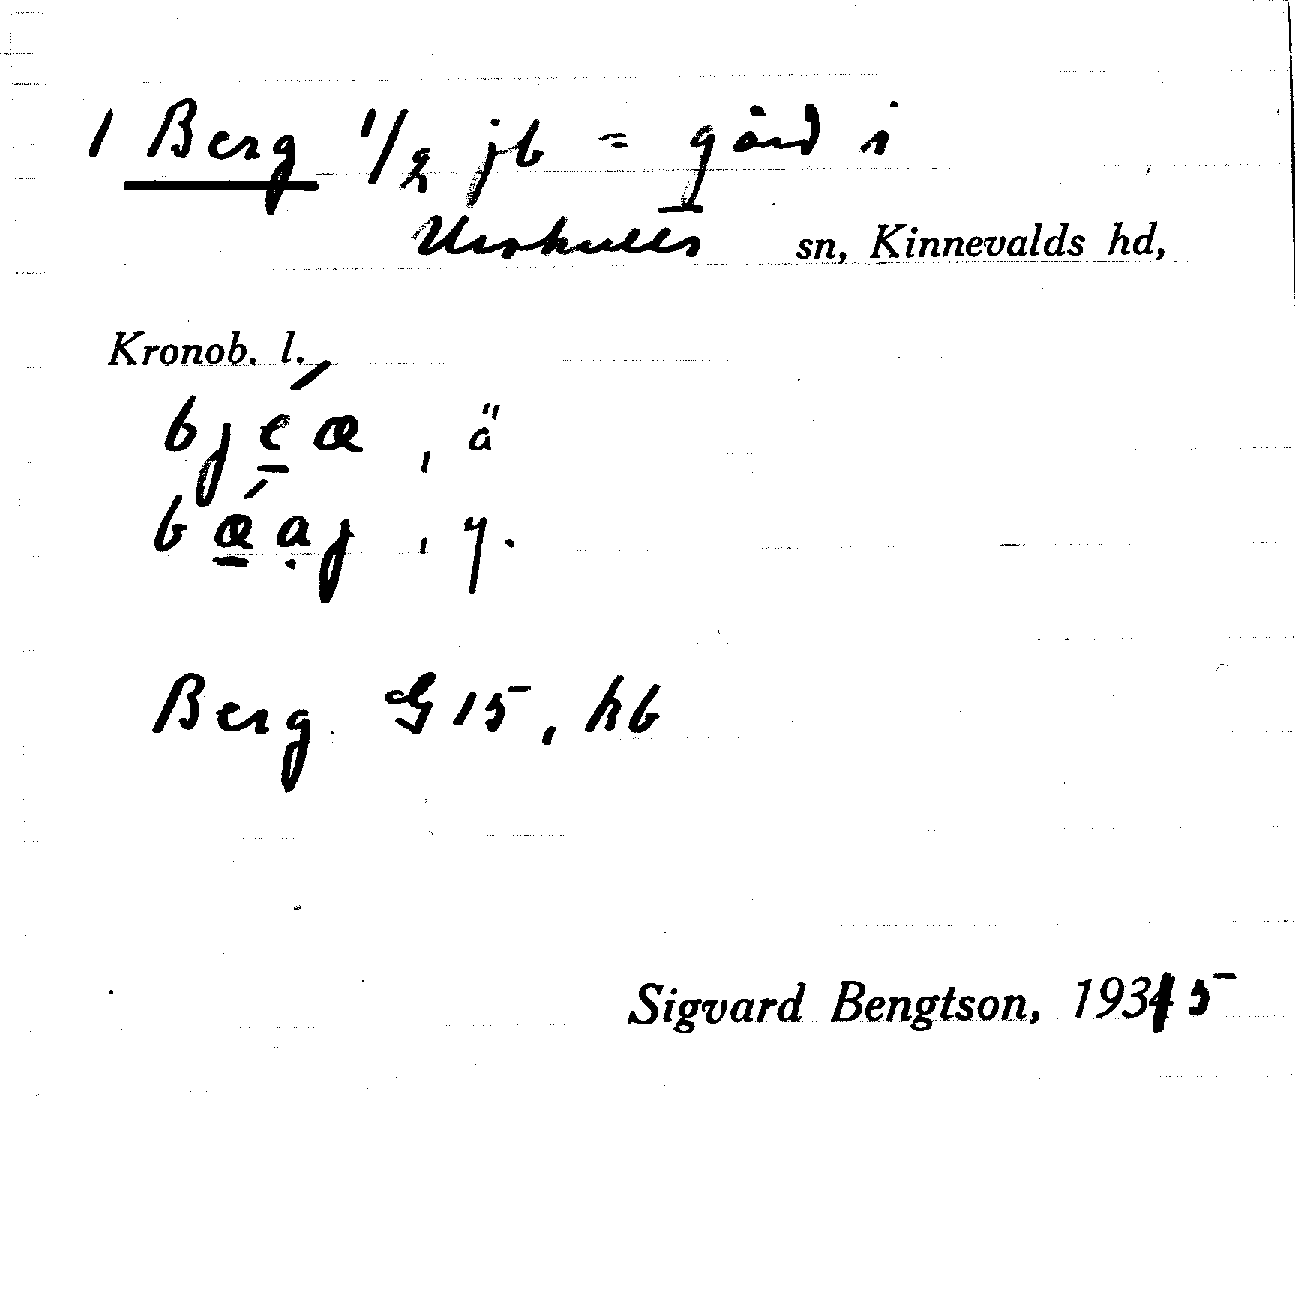 1 Berg 1/2 jb = gård i
Urshults sn, Kinnevalds hd,
Kronob. l.
bjéæ, ä
bǽạj, y.
Berg G 15, hb
Sigvard Bengtson, 1935